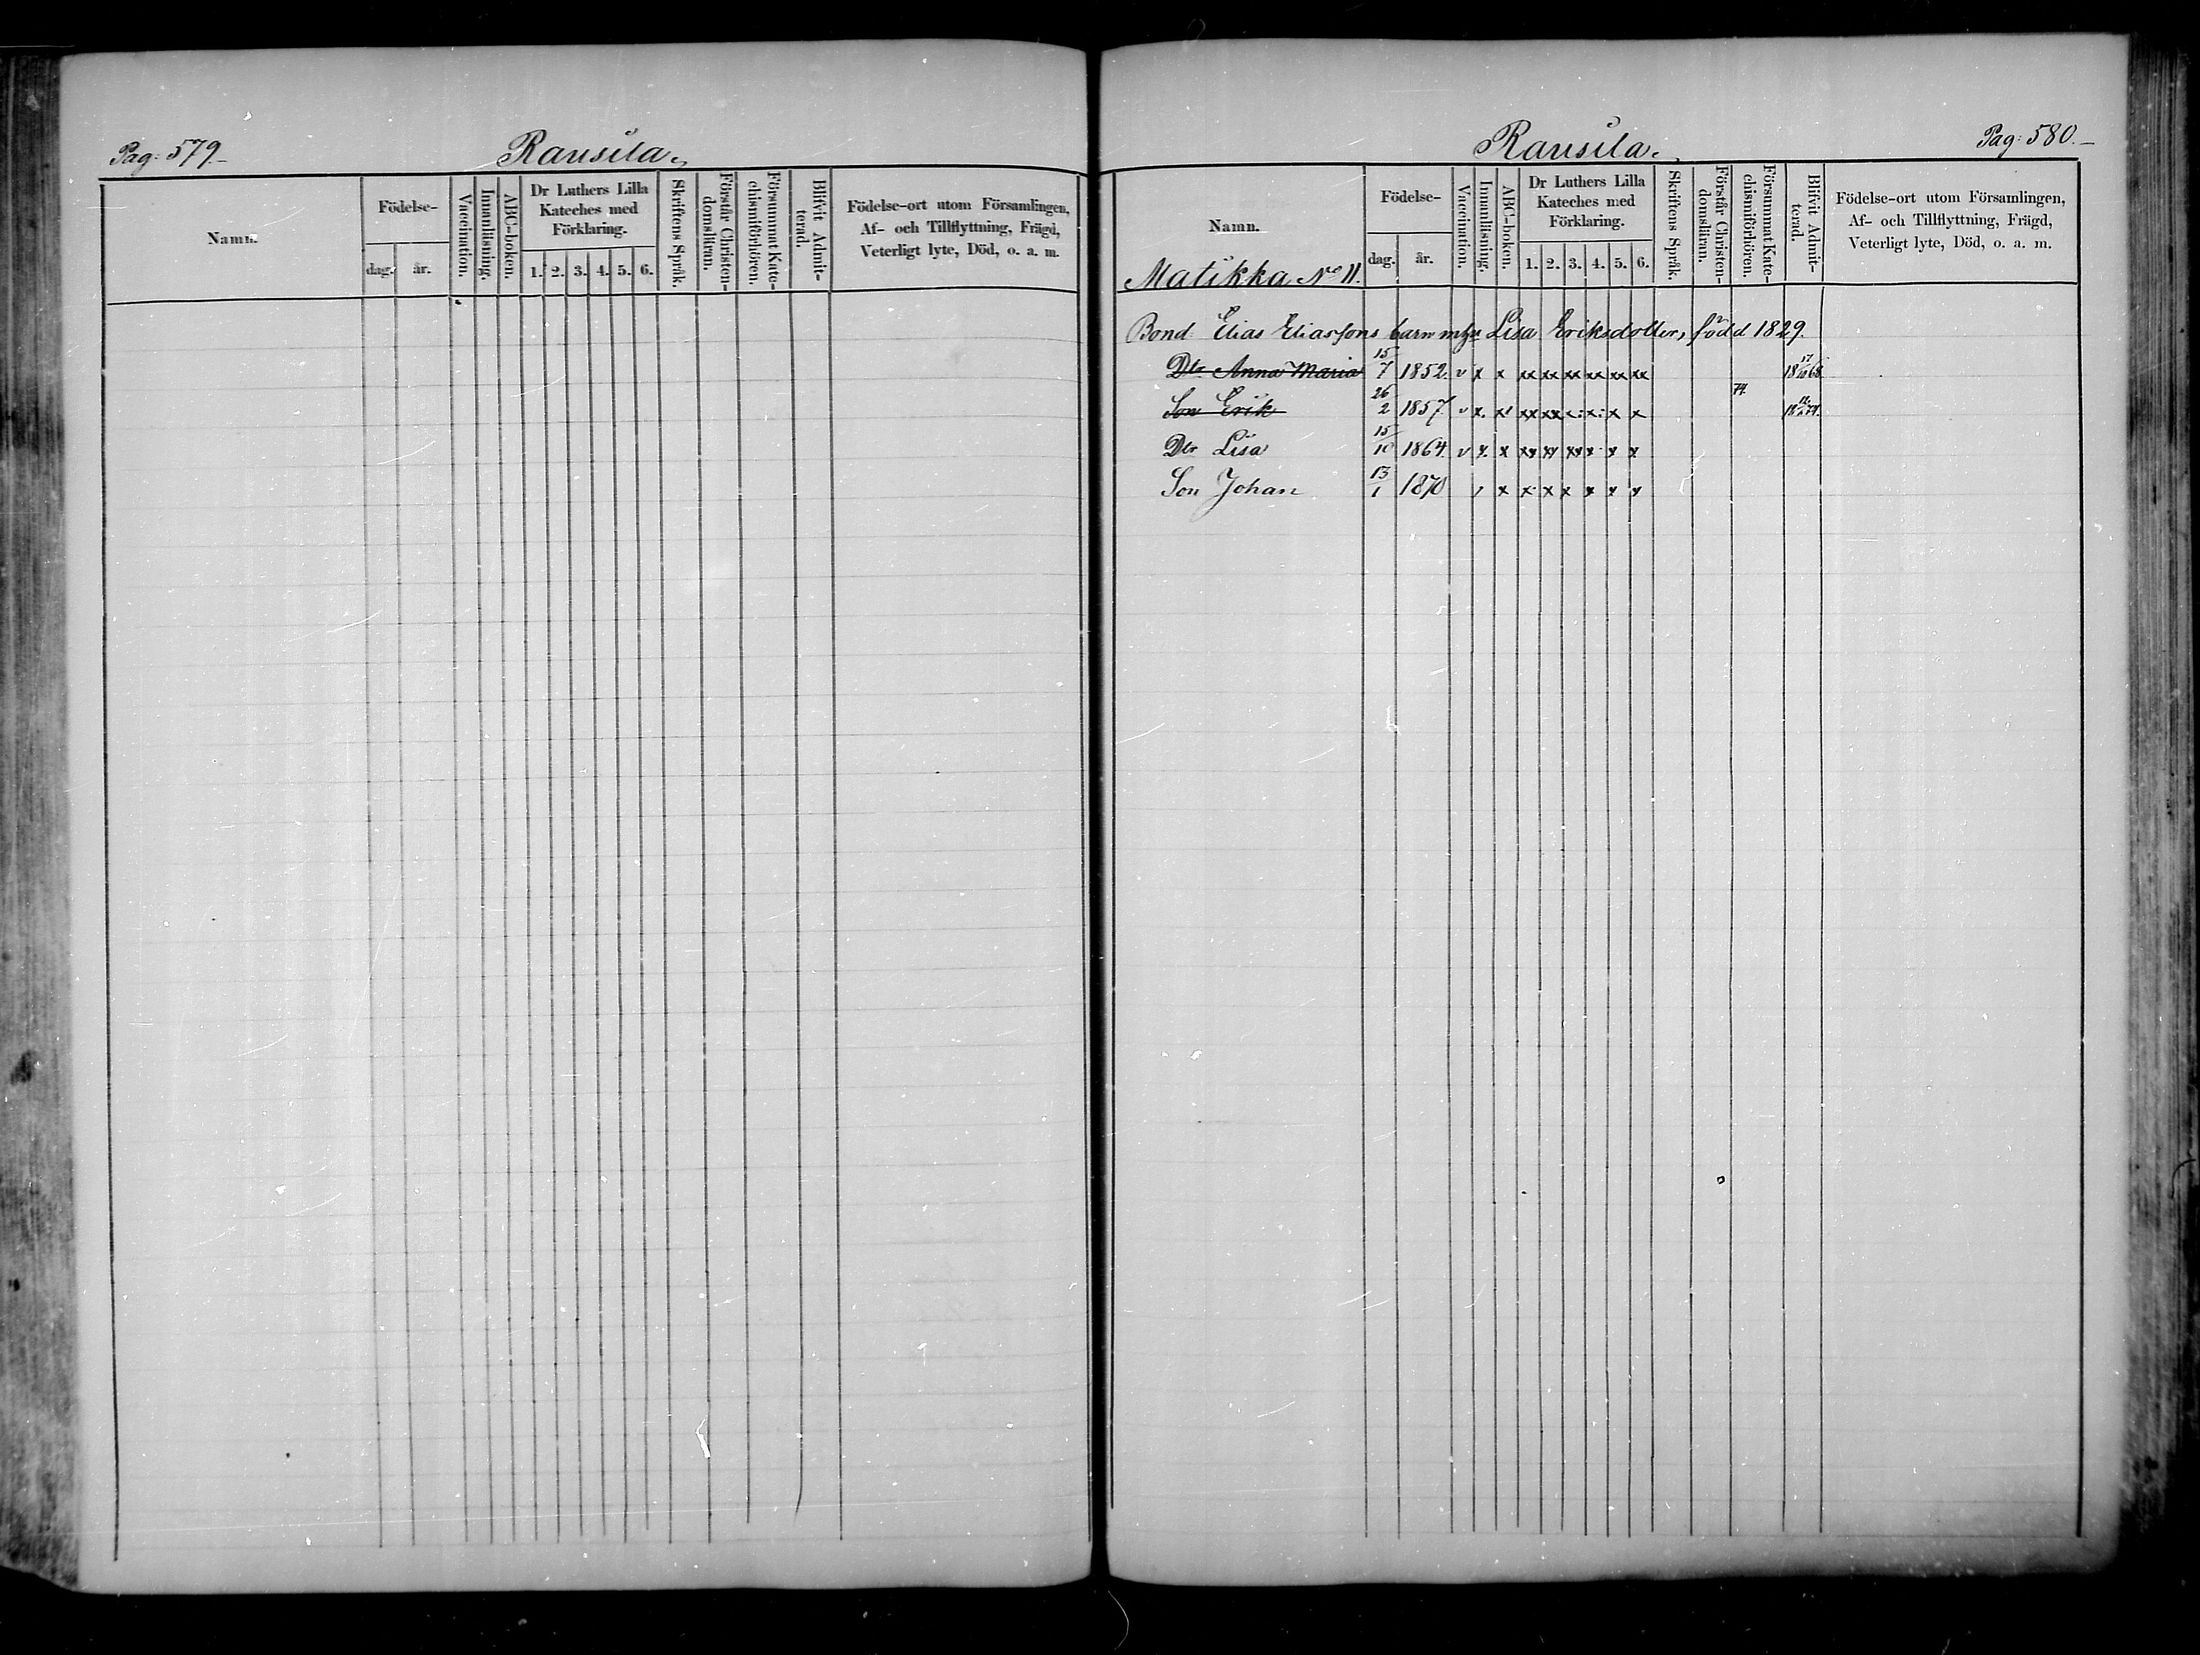 Pag: 579.
Ransila.
Namn.
Födelse-
dag. år.
Vaccination.
Innanläsning.
ABC-boken.
Dr Luthers Lilla
Kateches med
Förklaring.
1. 2. 3. 4. 5. 6.
Skriftens Språk.
Förstår Christen-
domsläran.
Försummat Kate-
chismiförhören.
Blifvit Admit-
terad.
Födelse-ort utom Församlingen,
Af- och Tillflyttning, Frägd,
Veterligt lyte, Död, o. a. m.
Ransila.
Pag: 580.
Namn.
Matikka No 11.
Födelse-
dag. år.
Vaccination.
Innanläsning.
ABC-boken.
Dr Luthers Lilla
Kateches med
Förklaring.
1. 2. 3. 4. 5. 6.
Skriftens Språk.
Förstår Christen-
domsläran.
Försummat Kate-
chismiförhören.
Blifvit Admit-
terad.
Födelse-ort utom Församlingen,
Af- och Tillflyttning, Frägd,
Veterligt lyte, Död, o. a. m.
Bond. Elias Eliassons barn Lisa Eriksdotter, född 1829.
Dtr Anna Maria 15/7 1852. v x x xx xx xx xx xx xx 18 17/10 68
Son Erik 26/2 1857 v x x xx xx x x x x 74.
Dtr Lisa 15/10 1864. v x x xx xx xx x x x
Son Johan 13/1 1870 x x x x x x x